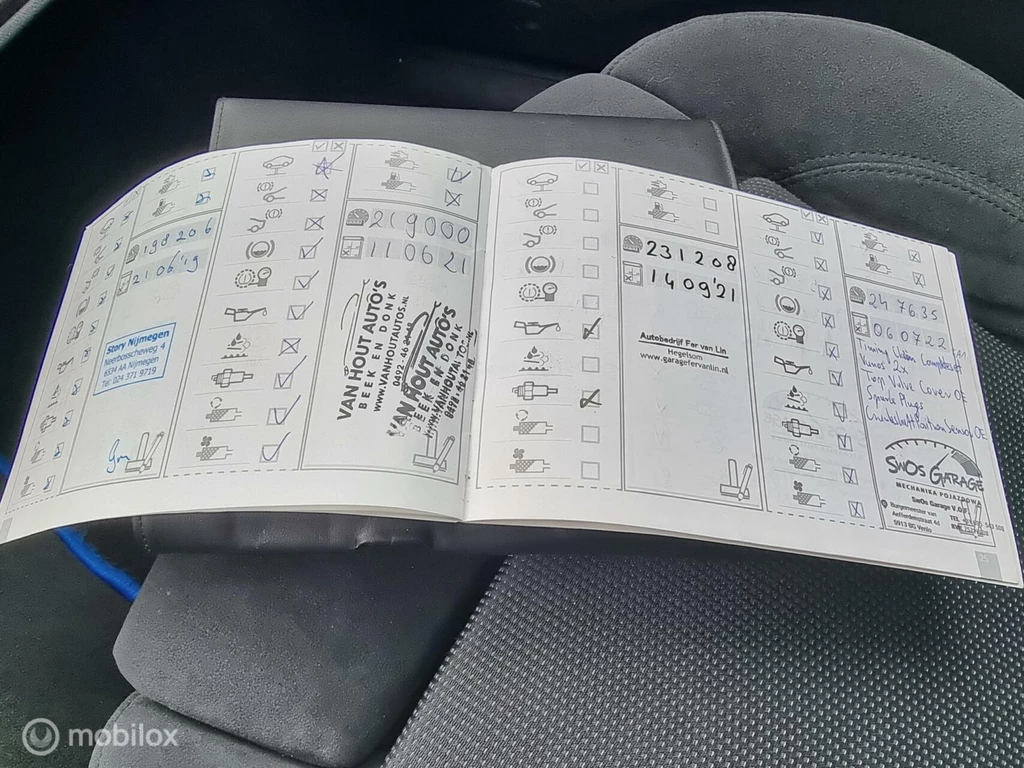 198206
21 06'19
Story Nijmegen
Neerbosscheweg 4
6534 AA Nijmegen
Tel: 024 371 9719
219000
110621
VAN HOUT AUTO'S
BEEK EN DONK
www.VANHOUTAUTOS.NL
0492-46
VAN HOUT AUTO'S
BEEK EN DONK
231208
140921
Autobedrijf Fer van Lin
Hegelsom
www.garagefervanlin.nl
247635
060722
Timing Chain Complete
Vanos 2x
Top Valve Cover OE
Spark Plugs
Crankshaft Position Sensor OE
SWOS GARAGE
MECHANIKA POJAZDOWA
SwOs Garage V.O.F
Burgemeester van
5913 BG Venlo
TEL
KVK
25
mobilox